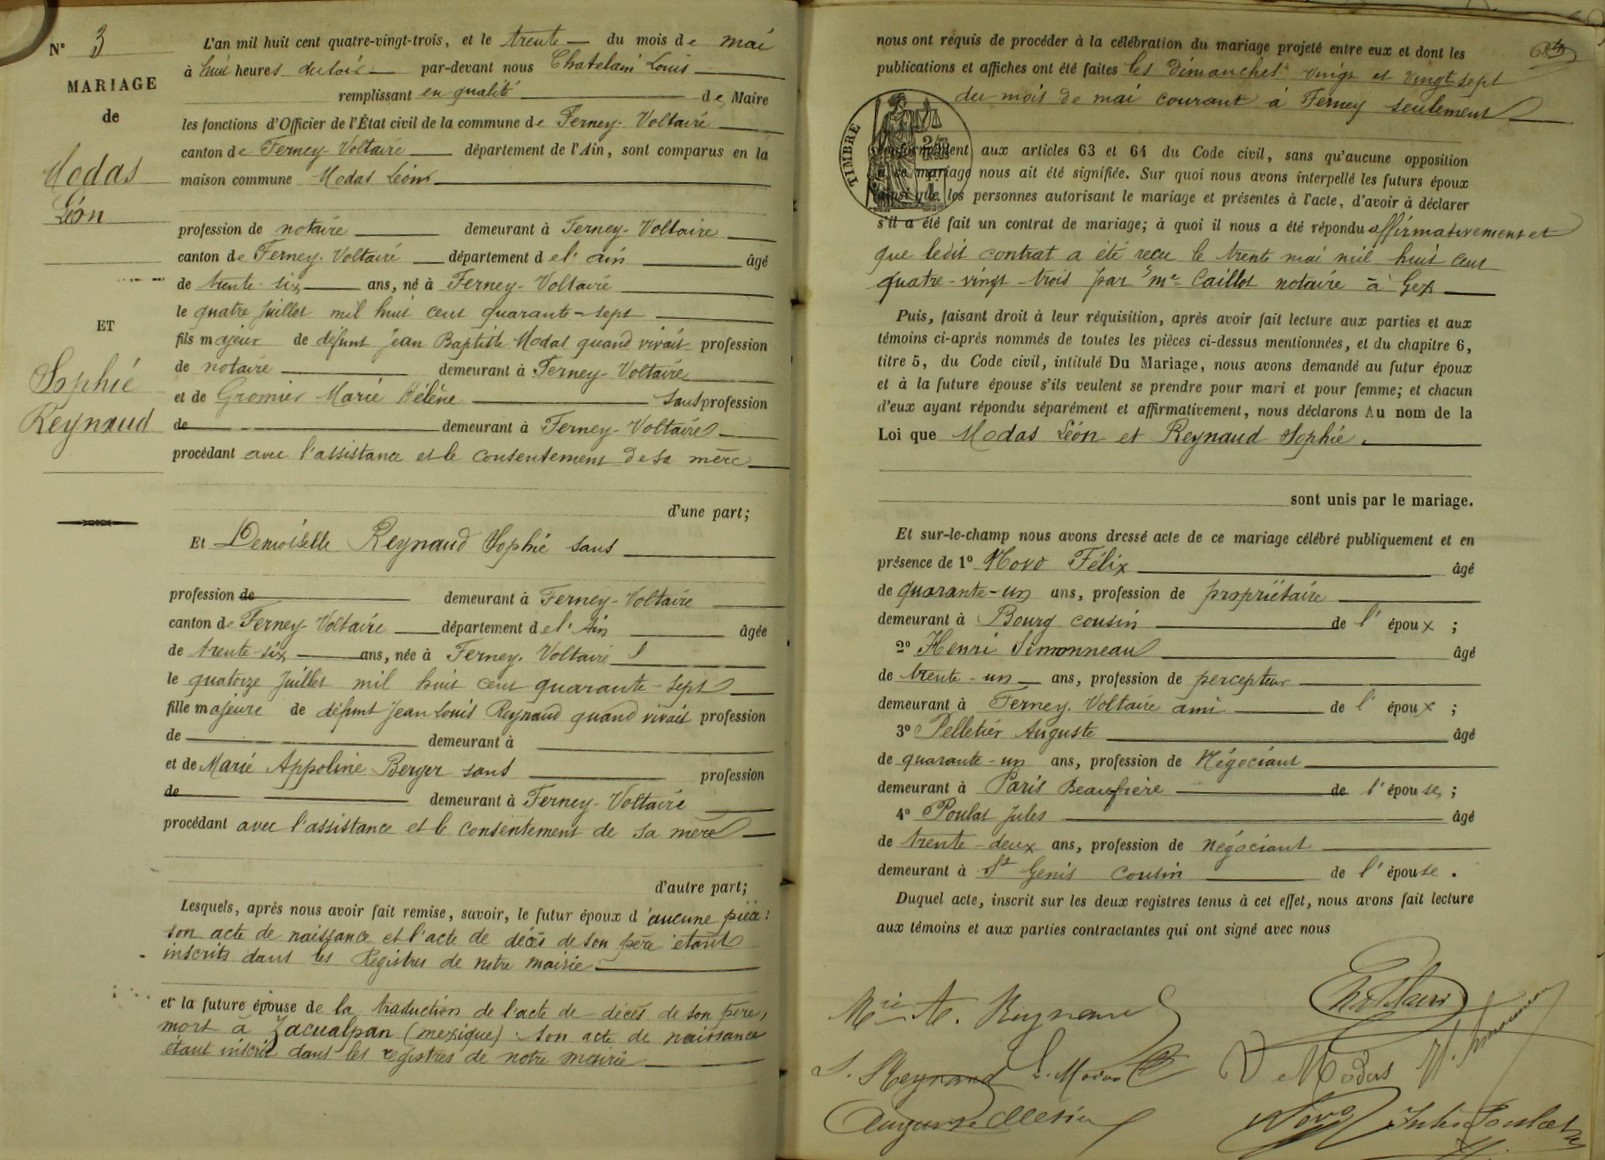 N° 3
MARIAGE
de
Modas
Léon
ET
Sophie
Reynaud
L'an mil huit cent quatre-vingt-trois, et le trente du mois de mai
à huit heures du soir par-devant nous Chatelain Louis
remplissant en qualité de Maire
les fonctions d'Officier de l'État civil de la commune de Ferney-Voltaire
canton de Ferney-Voltaire département de l'Ain, sont comparus en la
maison commune Modas Léon
profession de notaire demeurant à Ferney-Voltaire
canton de Ferney-Voltaire département de l'ain âgé
de trente-six ans, né à Ferney-Voltaire
le quatre Juillet mil huit cent quarante-sept
fils majeur de défunt Jean Baptiste Modas quand vivait profession
de notaire demeurant à Ferney-Voltaire
et de Gromier Marie Hélène sans profession
de demeurant à Ferney-Voltaire
procédant avec l'assistance et le consentement de sa mère
d'une part;
Et Demoiselle Reynaud Sophie sans
profession de demeurant à Ferney-Voltaire
canton de Ferney-Voltaire département de l'Ain âgée
de trente-six ans, née à Ferney-Voltaire
le quatorze Juillet mil huit cent quarante-sept
fille majeure de défunt Jean Louis Reynaud quand vivait profession
de demeurant à
et de Marie Appoline Berger sans profession
de demeurant à Ferney-Voltaire
procédant avec l'assistance et le consentement de sa mère
d'autre part;
Lesquels, après nous avoir fait remise, savoir, le futur époux d'aucune pièce:
son acte de naissance et l'acte de décès de son père étant
inscrits dans les Registres de notre mairie.
et la future épouse de la traduction de l'acte de décès de son père,
mort à Zacualpan (mexique). Son acte de naissance
étant inscrit dans les registres de notre mairie
nous ont requis de procéder à la célébration du mariage projeté entre eux et dont les
publications et affiches ont été faites les dimanches vingt et vingt sept
du mois de mai courant à Ferney seulement
TIMBRE
Conformément aux articles 63 et 64 du Code civil, sans qu'aucune opposition
à ce mariage nous ait été signifiée. Sur quoi nous avons interpellé les futurs époux
ainsi que les personnes autorisant le mariage et présentes à l'acte, d'avoir à déclarer
s'il a été fait un contrat de mariage; à quoi il nous a été répondu affirmativement et
que ledit contrat a été reçu le trente mai mil huit cent
quatre-vingt-trois par Me Caillot notaire à Gex
Puis, faisant droit à leur réquisition, après avoir fait lecture aux parties et aux
témoins ci-après nommés de toutes les pièces ci-dessus mentionnées, et du chapitre 6,
titre 5, du Code civil, intitulé Du Mariage, nous avons demandé au futur époux
et à la future épouse s'ils veulent se prendre pour mari et pour femme; et chacun
d'eux ayant répondu séparément et affirmativement, nous déclarons Au nom de la
Loi que Modas Léon et Reynaud Sophie
sont unis par le mariage.
Et sur-le-champ nous avons dressé acte de ce mariage célébré publiquement et en
présence de 1° Novo Félix âgé
de quarante-un ans, profession de propriétaire
demeurant à Bourg cousin de l'époux;
2° Henri Simonneau âgé
de trente-un ans, profession de percepteur
demeurant à Ferney-Voltaire ami de l'époux;
3° Pelletier Auguste âgé
de quarante-un ans, profession de Négociant
demeurant à Paris Beaufrère de l'épouse;
4° Poulat Jules âgé
de trente-deux ans, profession de négociant
demeurant à St Genis cousin de l'épouse.
Duquel acte, inscrit sur les deux registres tenus à cet effet, nous avons fait lecture
aux témoins et aux parties contractantes qui ont signé avec nous
Chatelain
S. Reynaud L. Modas Modas
Novo Jules Poulat